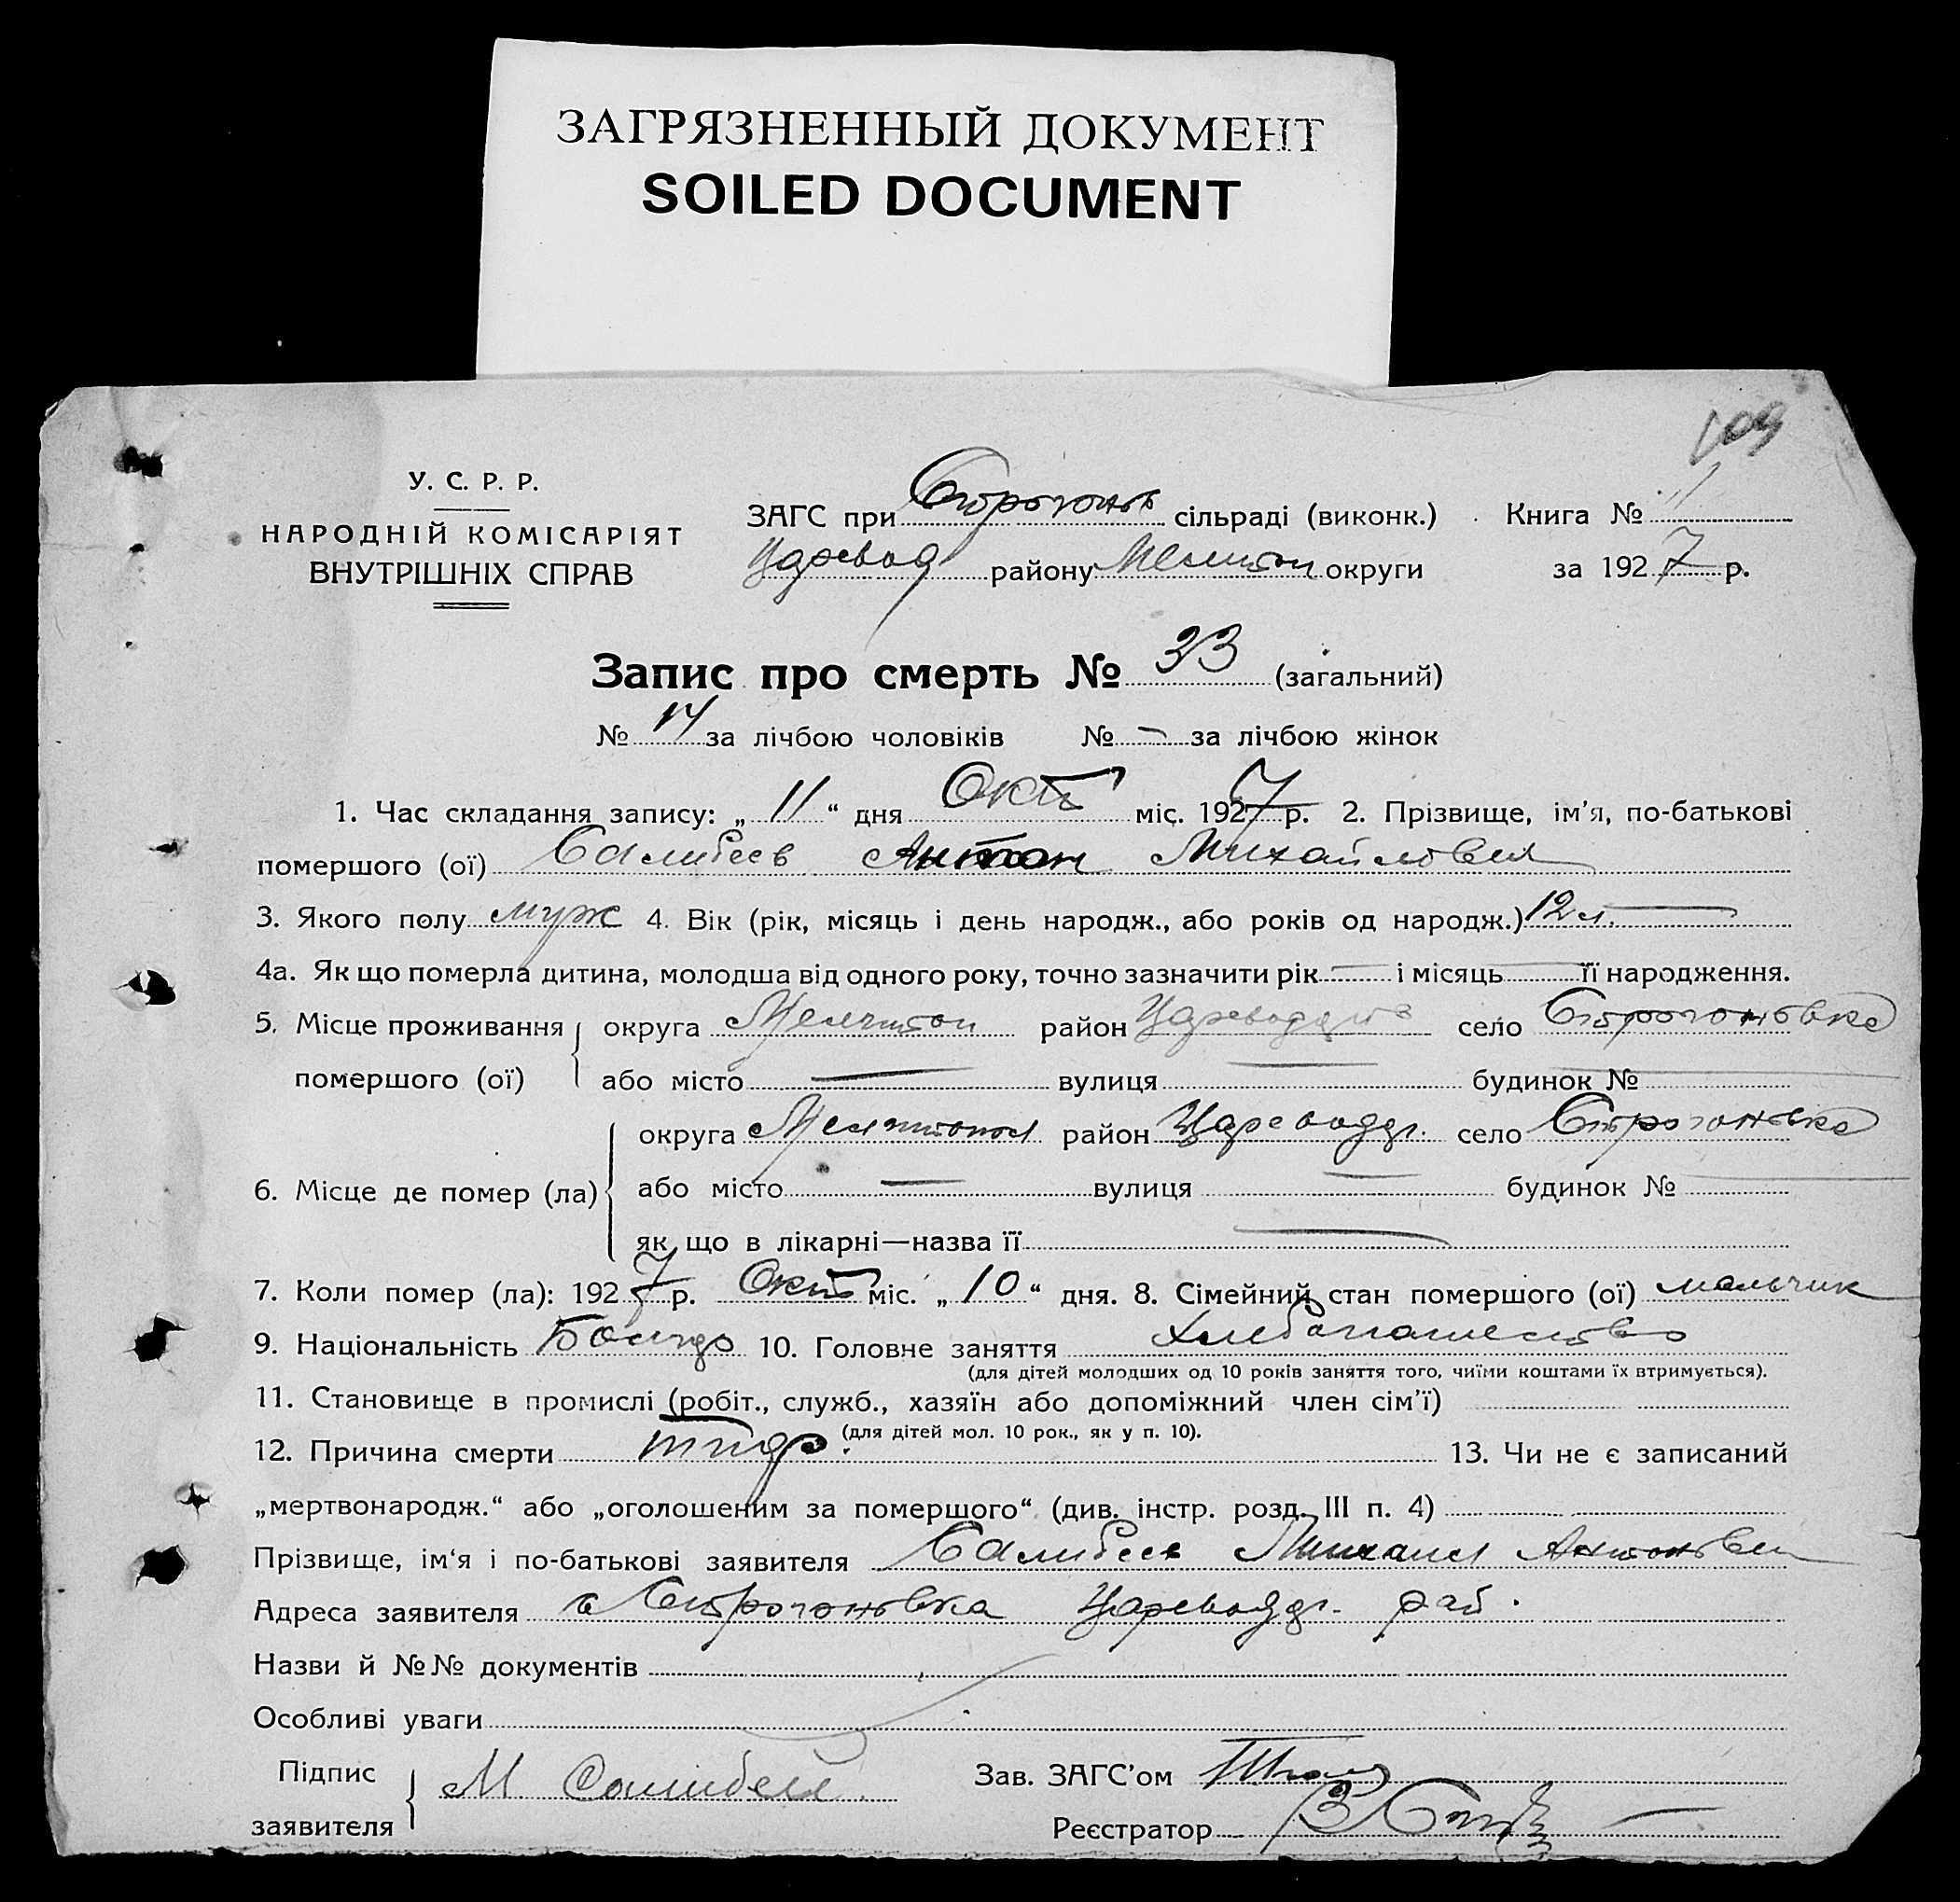 ЗАГРЯЗНЕННЫЙ ДОКУМЕНТ
SOILED DOCUMENT
109
У. С. Р. Р.
НАРОДНІЙ КОМІСАРІЯТ
ВНУТРІШНІХ СПРАВ
ЗАГС при Строгонов сільраді (виконк.)
Царевод району Мелитоп округи
Книга №
за 1927 р.
Запис про смерть № 33 (загальний)
№ 14 за лічбою чоловіків № — за лічбою жінок
1. Час складання запису: „11“ дня Окт міс. 1927 р. 2. Прізвище, ім'я, по-батькові
помершого (ої) Салибеев Антон Михайлович
3. Якого полу муж 4. Вік (рік, місяць і день народж., або років од народж.) 12 л. —
4а. Як що померла дитина, молодша від одного року, точно зазначити рік — і місяць — її народження.
5. Місце проживання помершого (ої) округа Мелитоп район Царевод село Строгоновка
або місто — вулиця — будинок № —
6. Місце де помер (ла) округа Мелитопол район Цареводдр. село Строгоновка
або місто — вулиця — будинок № —
як що в лікарні—назва її —
7. Коли помер (ла): 1927 р. Окт міс. „10“ дня. 8. Сімейний стан помершого (ої) мальчик
9. Національність 10. Головне заняття хлебопашество
(для дітей молодших од 10 років заняття того, чиїми коштами їх втримується).
11. Становище в промислі (робіт., служб., хазяїн або допоміжний член сім'ї)
(для дітей мол. 10 рок., як у п. 10).
12. Причина смерти тиф. 13. Чи не є записаний
„мертвонародж.“ або „оголошеним за помершого“ (див. інстр. розд. III п. 4)
Прізвище, ім'я і по-батькові заявителя Салибеев Михаил Антонович
Адреса заявителя с Строгоновка Цареводдр. рай.
Назви й №№ документів
Особливі уваги
Підпис заявителя М Салибеев
Зав. ЗАГС'ом
Реєстратор